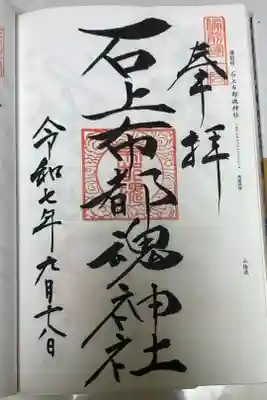 奉拝
石上布都魂神社
令和七年九月十八日